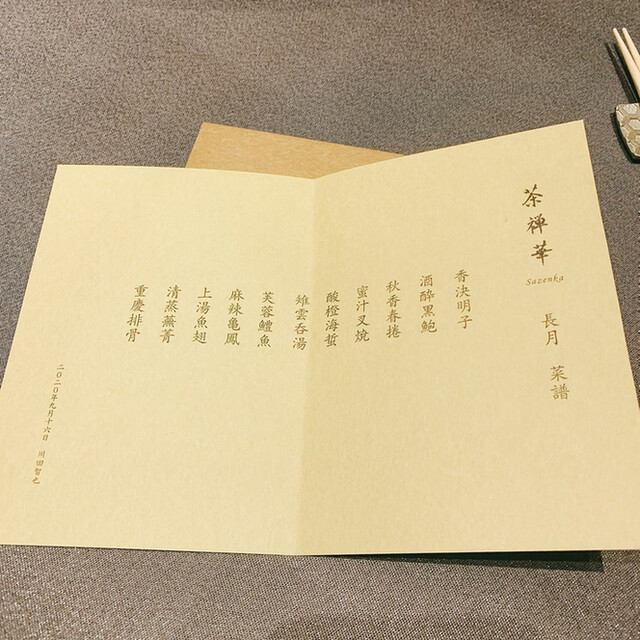 茶禅華
Sazenka
長月 菜譜
香決明子
酒酔黒鮑
秋香春捲
蜜汁叉焼
酸橙海蜇
雉雲呑湯
芙蓉鱧魚
麻辣亀鳳
上湯魚翅
清蒸蕪菁
重慶排骨
二〇二〇年九月十六日 川田智也